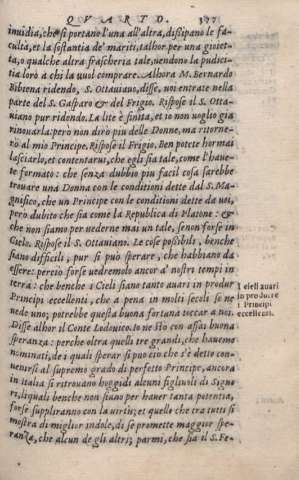 QVARTO. 177
inuidia, che si portano l'una all'altra, dissipano le fa-
cultà, et la sostantia de' mariti, talhor per una gioiet-
ta, o qualche altra frascheria tale, uendono la pudici-
tia lorò a chi la vuol comprare. Alhora M. Bernardo
Bibiena ridendo, S. Ottauiano, disse, uoi entrate nella
parte del S. Gasparo & del Frigio. Rispose il S. Otta-
uiano pur ridendo. La lite è finita, et io non uoglio gia
rinouarla: però non dirò piu delle Donne, ma ritorne-
rò al mio Principe. Rispose il Frigio. Ben potete hormai
lasciarlo, et contentarui, che egli sia tale, come l'haue-
te formato: che senza dubbio piu facil cosa sarebbe
trouare una Donna con le conditioni dette dal S. Ma-
gnifico, che un Principe con le conditioni dette da voi,
però dubito che sia come la Republica di Platone: &
che non siamo per uederne mai un tale, senon forse in
Cielo. Rispose il S. Ottauiano. Le cose possibili, benche
siano difficili, pur si può sperare, che habbiano da
essere: percio forse uedremolo ancor a' nostri tempi in
terra: che benche i Cieli siano tanto auari in produr
Principi eccellenti, che a pena in molti secoli se ne
uede uno; potrebbe questa buona fortuna toccar a noi.
Disse alhor il Conte Lodouico. Io ne sto con assai buona
speranza: perche oltra quelli tre grandi, che hauemo
nominati, de i quali sperar si puo cio che s'è detto con-
uenirsi al supremo grado di perfetto Principe, ancora
in Italia si ritrouano hoggidi alcuni figliuoli di Signo-
ri, liquali benche non siano per hauer tanta potentia,
forse suppliranno con la uirtù; et quello che tra tutti si
mostra di miglior indole, & di se promette maggior spe-
ranza, che alcun de gli altri; parmi, che sia il S. Fe-
I cieli auari
in produrre
i Principi
eccellenti.